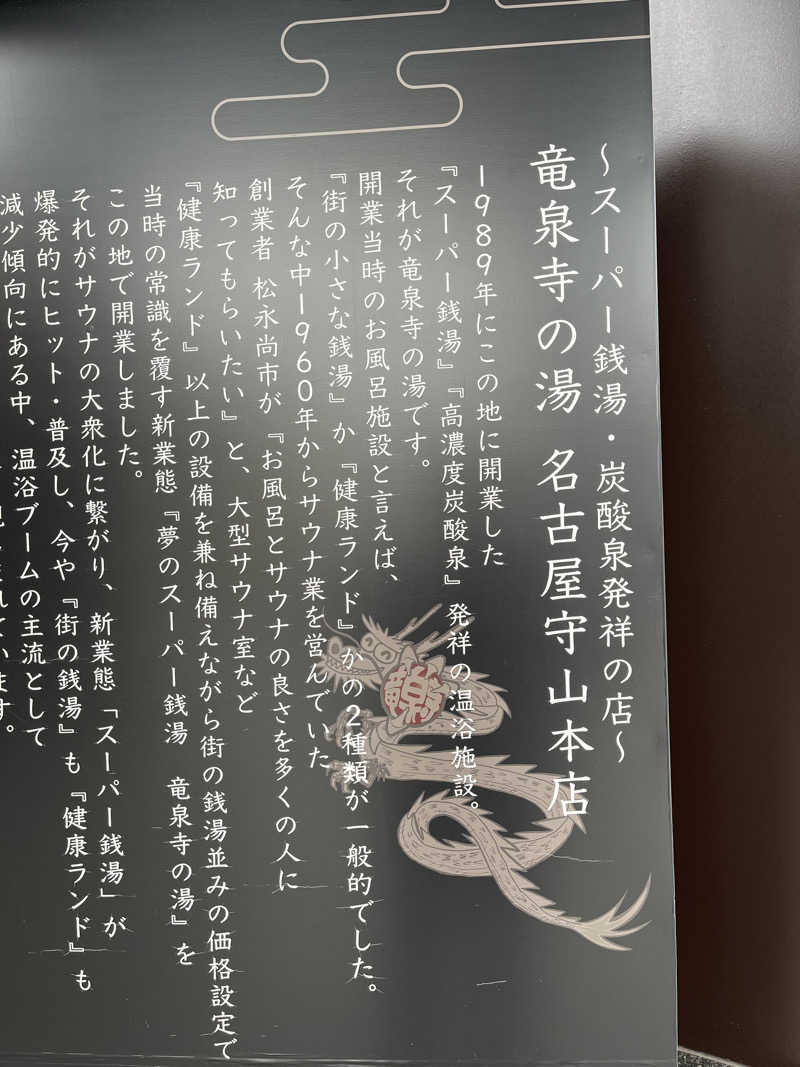 〜スーパー銭湯・炭酸泉発祥の店〜
竜泉寺の湯 名古屋守山本店
1989年にこの地に開業した
『スーパー銭湯』『高濃度炭酸泉』発祥の温浴施設。
それが竜泉寺の湯です。
開業当時のお風呂施設と言えば、
『街の小さな銭湯』か『健康ランド』かの2種類が一般的でした。
そんな中1960年からサウナ業を営んでいた
創業者 松永尚市が『お風呂とサウナの良さを多くの人に
知ってもらいたい』と、大型サウナ室など
『健康ランド』以上の設備を兼ね備えながら街の銭湯並みの価格設定で
当時の常識を覆す新業態『夢のスーパー銭湯 竜泉寺の湯』を
この地で開業しました。
それがサウナの大衆化に繋がり、新業態「スーパー銭湯」が
爆発的にヒット・普及し、今や『街の銭湯』も『健康ランド』も
減少傾向にある中、温浴ブームの主流として